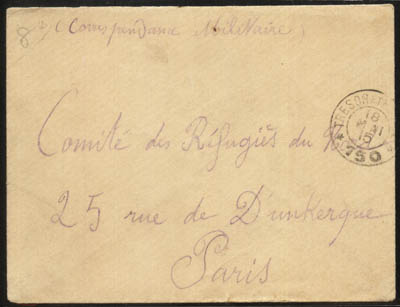 8f (Correspondance Militaire)
TRESOR ET POSTES
18
MAI
15
*750*
Comité des Réfugiés du N
25 rue de Dunkerque
Paris